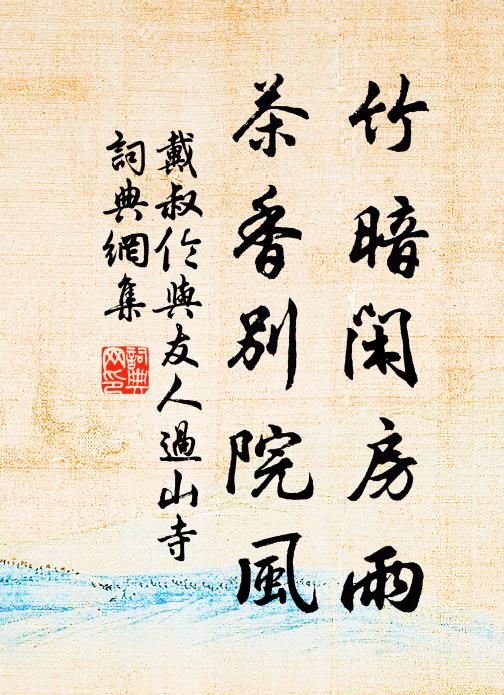 竹暗閑房雨
茶香別院風
戴叔伦與友人過山寺
詞典網集
詞典
网印